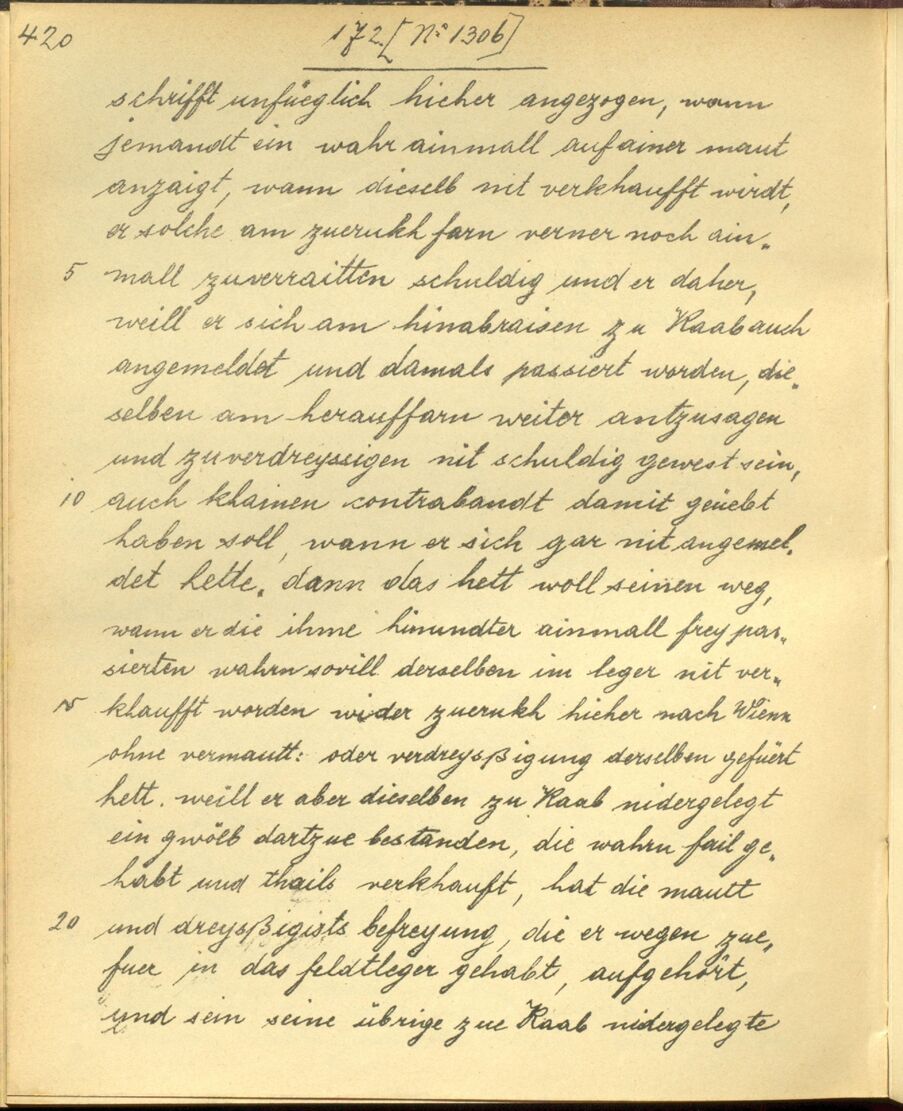 420
172 [No 1306]
schrifft unfüeglich hieher angezogen, wann
jemandt ein wahr ainmall auf ainer maut
anzaigt, wann dieselb nit verkhaufft wirdt,
er solche am zuerukh farn verner noch ain„
5 mall zuverraitten schuldig und er daher,
weill er sich am hinabraisen zu Raab auch
angemeldet und damals passiert worden, die„
selben am herauffarn weiter antzusagen
und zuverdreyssigen nit schuldig gewest sein,
10 auch klainen contrabandt damit geüebt
haben soll, wann er sich gar nit angemel„
det hette. dann das hett woll seinen weg,
wann er die ihme hinundter ainmall frey pas„
sierten wahrn sovill derselben im leger nit ver„
15 khaufft worden wider zuerukh hieher nach Wienn
ohne vermautt: oder verdreysßigung derselben gefüert
hett. weill er aber dieselben zu Raab nidergelegt
ein gwölb dartzue bestanden, die wahrn fail ge„
habt und thails verkhauft, hat die mautt
20 und dreysßigists befreyung, die er wegen zue„
fuer in das feldtleger gehabt, aufgehört,
und sein seine übrige zue Raab nidergelegte